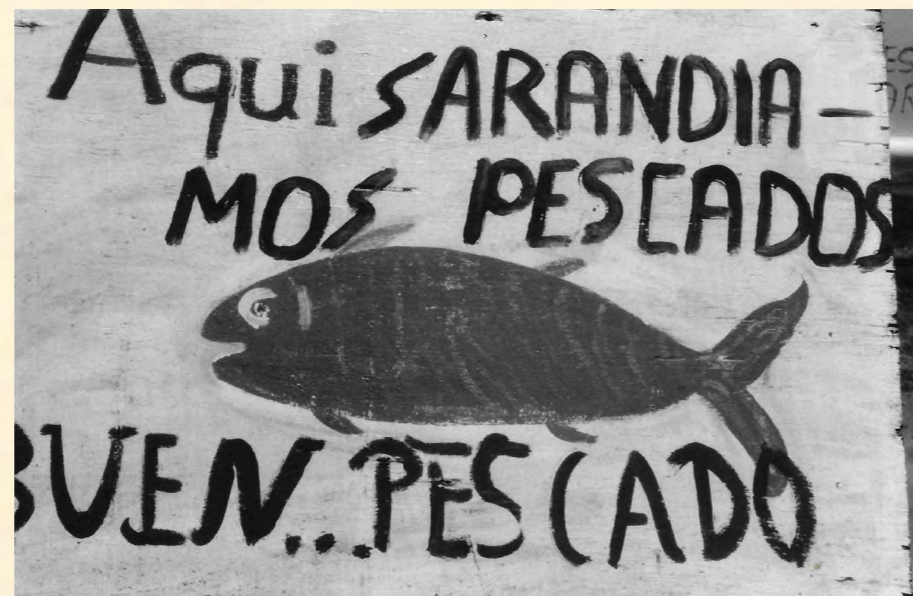 Aqui SARANDIA-
MOS PESCADOS
BUEN...PESCADO